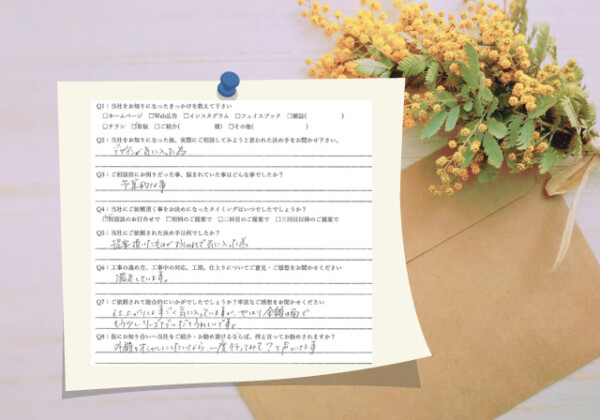 Q1：当社をお知りになったきっかけを教えて下さい
□ホームページ □Web広告 □インスタグラム □フェイスブック □雑誌( )
□チラシ ☑看板 □ご紹介( 様) □その他( )
Q2：当社をお知りになった後、実際にご相談してみようと思われた決め手をお聞かせ下さい。
デザインが気に入った為
Q3：ご相談前にお困りだった事、悩まれていた事はどんな事でしたか？
予算的な事
Q4：当社にご依頼頂く事をお決めになったタイミングはいつでしたでしょうか？
☑初面談のお打合せで □初回のご提案で □二回目のご提案で □三回目以降のご提案で
Q5：当社にご依頼された決め手は何でしたか？
提案頂いたものがおしゃれで気に入った為
Q6：工事の進め方、工事中の対応、工期、仕上りについてご意見・ご感想をお聞かせください
満足しています。
Q7：ご依頼されて総合的にいかがでしたでしょうか？率直なご感想をお聞かせください
仕上がりはすごく気に入っていますが、やはり金額の面で
もう少しリーズナブルだとうれしいです。
Q8：仮にお知り合いへ当社をご紹介・お勧め頂けるならば、何と言ってお勧めされますか？
外観をオシャレにしたいなら、一度行ってみて？と声かけます